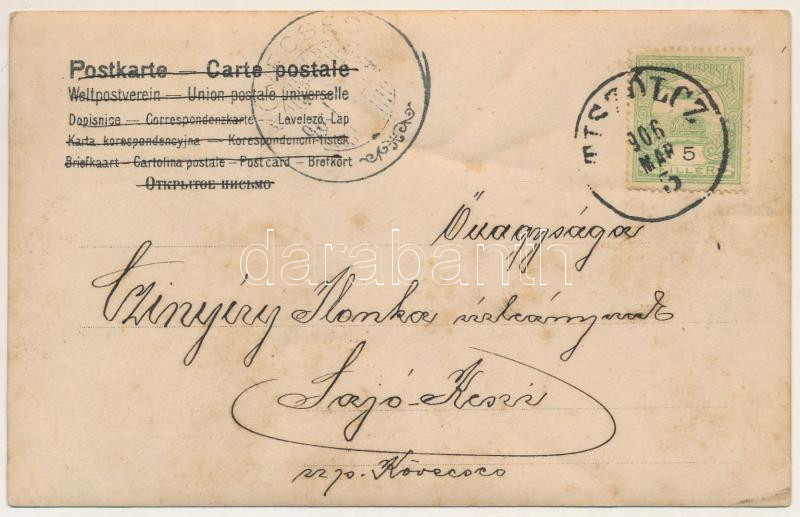 Postkarte — Carte postale
Weltpostverein — Union postale universelle
Dopisnice — Correspondenzkarte — Levelező Lap
Karta korespondencyjna — Korespondencni listek
Briefkaart — Cartolina postale — Post card — Brefkort
Открытое письмо
TISZOLCZ
906
MAR
5
MAGYAR KIR. POSTA
5
FILLÉR
Őnagysága
Czinyéry Ilonka úrleánynak
Sajó-Keszi
u. p. Kövecses
darabanth